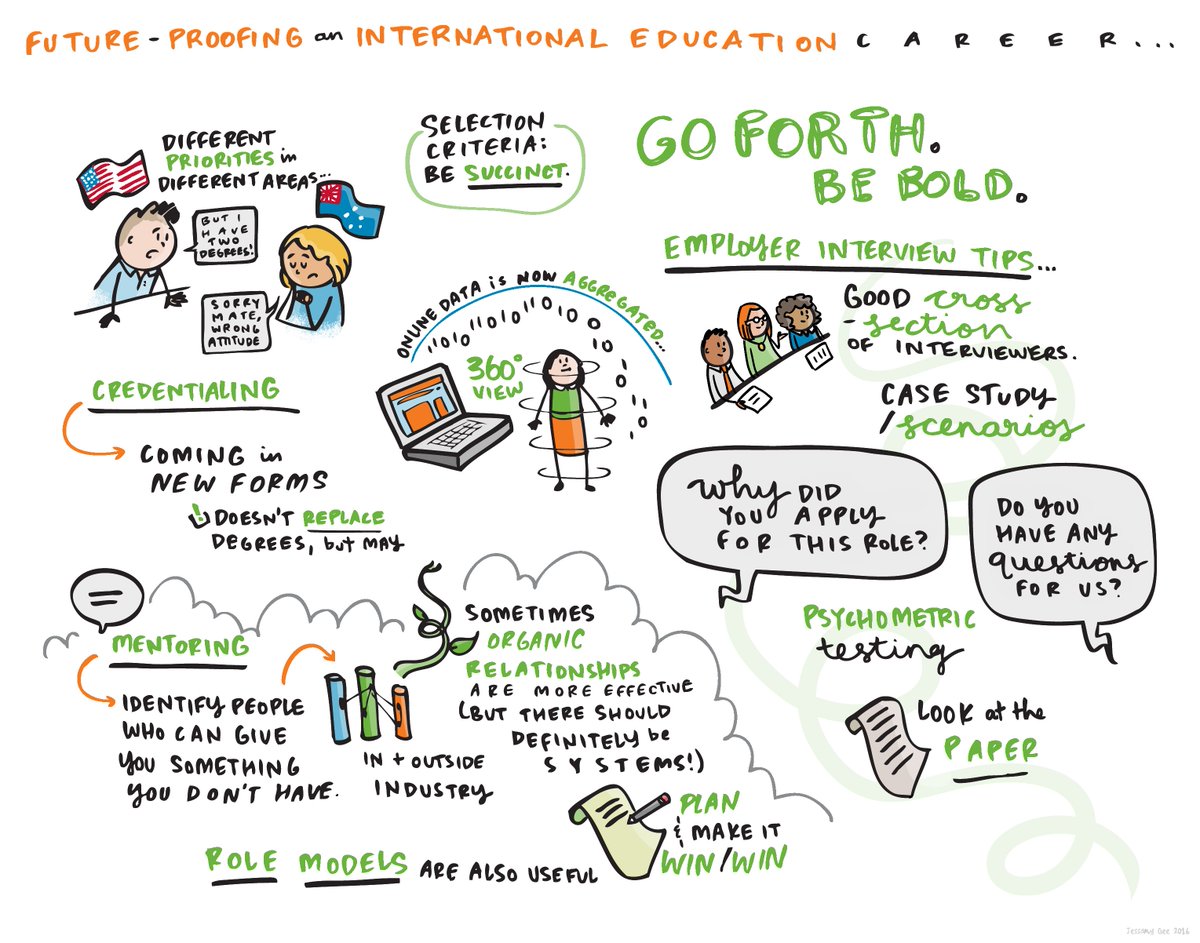 FUTURE-PROOFING an INTERNATIONAL EDUCATION CAREER...
DIFFERENT
PRIORITIES in
DIFFERENT AREAS...
BUT I
HAVE
TWO
DEGREES!
SORRY
MATE,
WRONG
ATTITUDE
SELECTION
CRITERIA:
BE SUCCINCT.
GO FORTH.
BE BOLD.
ONLINE DATA is NOW AGGREGATED...
360°
VIEW
EMPLOYER INTERVIEW TIPS...
GOOD cross
-section
OF INTERVIEWERS.
CASE STUDY
/scenarios
Why DID
YOU APPLY
FOR THIS ROLE?
DO YOU
HAVE ANY
questions
FOR US?
PSYCHOMETRIC
testing
LOOK at the
PAPER
CREDENTIALING
COMING in
NEW FORMS
! DOESN'T REPLACE
DEGREES, but MAY
MENTORING
IDENTIFY PEOPLE
WHO CAN GIVE
YOU SOMETHING
YOU DON'T HAVE.
IN + OUTSIDE
INDUSTRY
SOMETIMES
ORGANIC
RELATIONSHIPS
ARE MORE EFFECTIVE
(BUT THERE SHOULD
DEFINITELY be
SYSTEMS!)
PLAN
& MAKE IT
WIN/WIN
ROLE MODELS ARE ALSO USEFUL
Jessamy Gee 2016